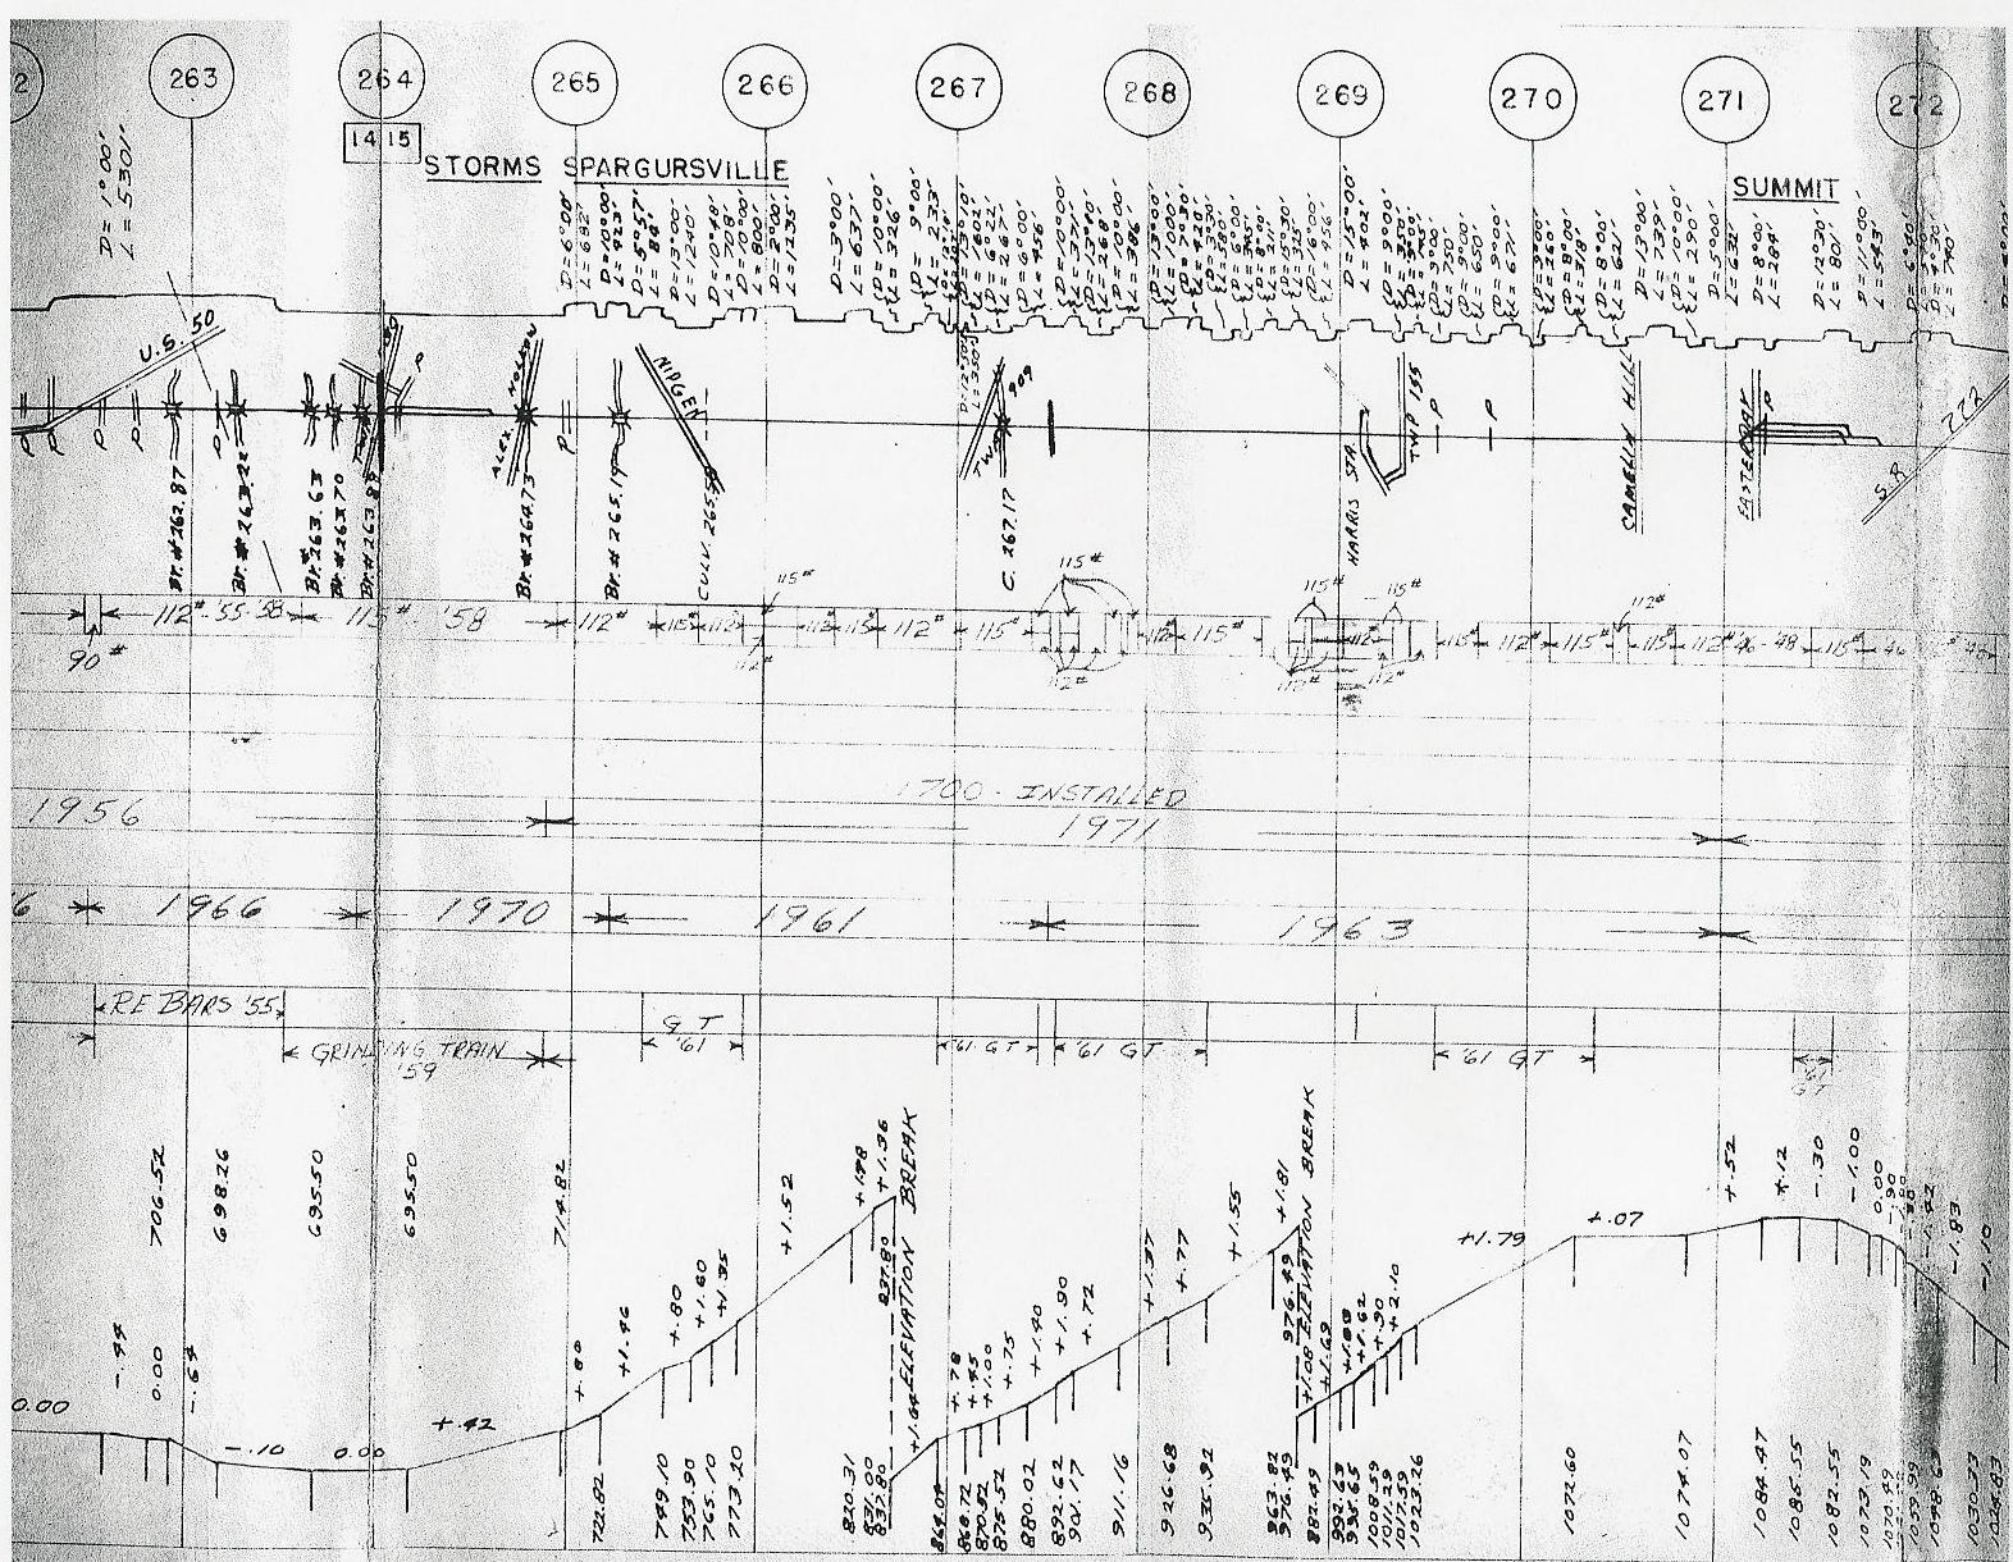 2 263 264 265 266 267 268 269 270 271 272
14 15
STORMS SPARGURSVILLE
SUMMIT
D=1°00'
L=5301'
D=6°00'
L=682'
D=10°00'
L=423'
D=5°57'
L=84'
D=13°00'
L=1240'
D=10°48'
L=708'
D=10°00'
L=800'
D=2°00'
L=1235'
D=3°00'
L=637'
D=10°00'
L=326'
D=9°00'
L=233'
D=13°10'
L=1602'
D=6°22'
L=267'
D=6°00'
L=456'
D=10°00'
L=371'
D=13°40'
L=268'
D=10°00'
L=386'
D=13°00'
L=1000'
D=7°30'
L=420'
D=3°30'
L=380'
D=6°00'
D=8°00'
L=211'
D=15°30'
L=325'
D=16°00'
L=456'
D=15°00'
L=402'
D=9°00'
L=350'
D=9°00'
D=9°00'
L=750'
D=9°00'
L=650'
D=9°00'
L=671'
D=9°00'
L=260'
D=8°00'
L=318'
D=8°00'
L=621'
D=13°00'
L=739'
D=10°00'
L=290'
D=5°00'
L=632'
D=8°00'
L=284'
D=12°30'
L=801'
D=11°00'
L=543'
D=6°40'
D=4°30'
L=740'
U.S. 50
P P P P P
ALEX. HOLSON
P
NIPGEN
D=12°50'
L=350'
TWP 909
HARRIS STA.
TWP 155
P P
CAMELIN HILL
EASTER DAY
P
S.R. 772
Br.#262.87
Br.#263.22
Br.#263.63
Br.#263.70
Br.#263.89
Br.#264.73
Br.#265.19
CULV. 265.
C. 267.17
90#
112#-'55-'58
115# '58
112# 115# 112# 115# 112# 112# 115# 112# 115#
115# 112# 112# 115# 115# 115# 112# 112# 112#
115# 112# 115# 112# 115# 112# '46-'48 115# 46
1956
1700 - INSTALLED
1971
6 1966 1970 1961 1963
RE BARS '55
GRINDING TRAIN
'59
G T
'61
'61 GT
'61 GT
'61 GT
'61
GT
706.52
698.26
695.50
695.50
714.82
0.00
-.44
0.00
-.64
-.10
0.00
+.42
+.80
+1.46
+.80
+1.60
+1.35
+1.52
+1.98
+1.36
837.80
ELEVATION BREAK
+1.64
+.78
+.45
+1.00
+.75
+1.40
+1.90
+.72
+1.37
+.77
+1.55
+1.81
976.49
ELEVATION BREAK
+1.08
+1.69
+1.62
+.90
+2.10
+1.79
+.07
+.52
+.12
-.30
-1.00
0.00
-.90
-1.42
-1.83
-1.10
722.82
749.10
753.90
765.10
773.20
820.31
831.00
837.80
864.04
868.72
870.52
875.52
880.02
892.62
901.17
911.16
926.68
935.92
963.82
976.49
882.49
992.63
995.65
1008.59
1011.29
1017.59
1023.26
1072.60
1074.07
1084.47
1085.55
1082.55
1073.19
1070.49
1059.99
1030.33